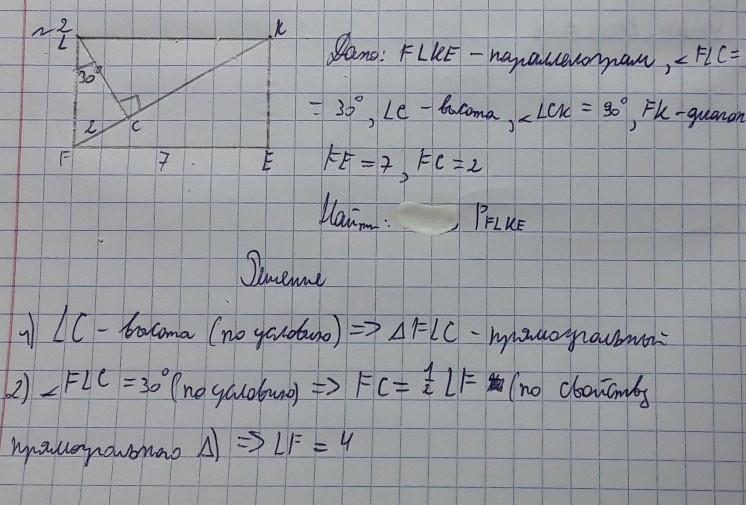 №2
L K
30°
2 C
F 7 E
Дано: FLKE - параллелограм, ∠FLC=
= 30°, LC - высота, ∠LCK = 90°, FK - диагон
FE = 7, FC = 2
Найти: , P FLKE
Решение
1) LC - высота (по условию) => Δ FLC - прямоугольный
2) ∠FLC = 30° (по условию) => FC = 1/2 LF (по свойству
прямоугольного Δ) => LF = 4